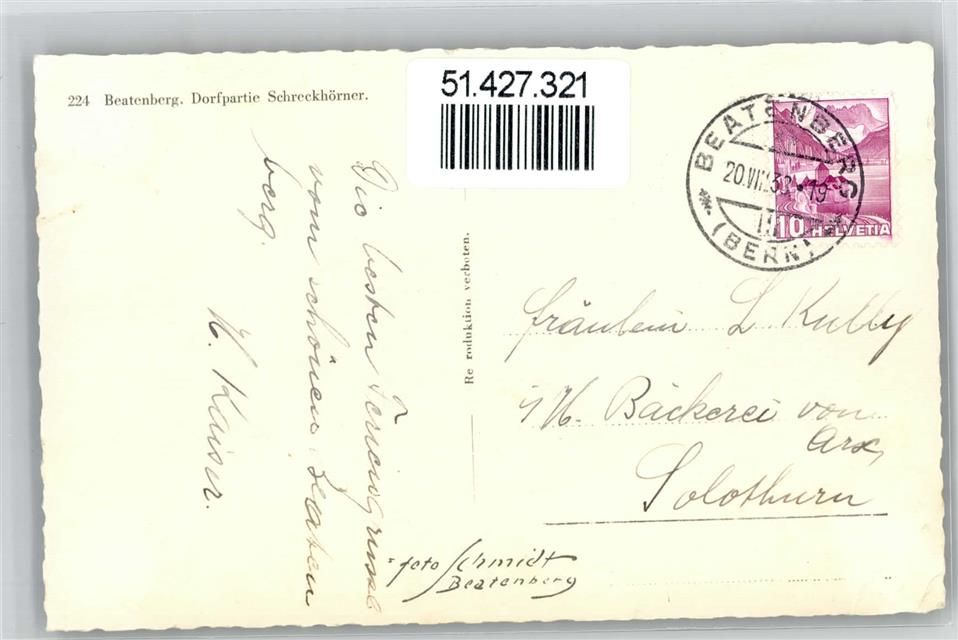 224 Beatenberg. Dorfpartie Schreckhörner.
51.427.321
BEATENBERG
20.VII.38.-19
(BERN)
10 HELVETIA
Die besten Feriengrüsse
vom schönen Beaten
berg.
H. Kaiser.
Re roduktion verboten.
Fräulein L Kully
Bäckerei von
Arx,
Solothurn
foto Schmidt
Beatenberg